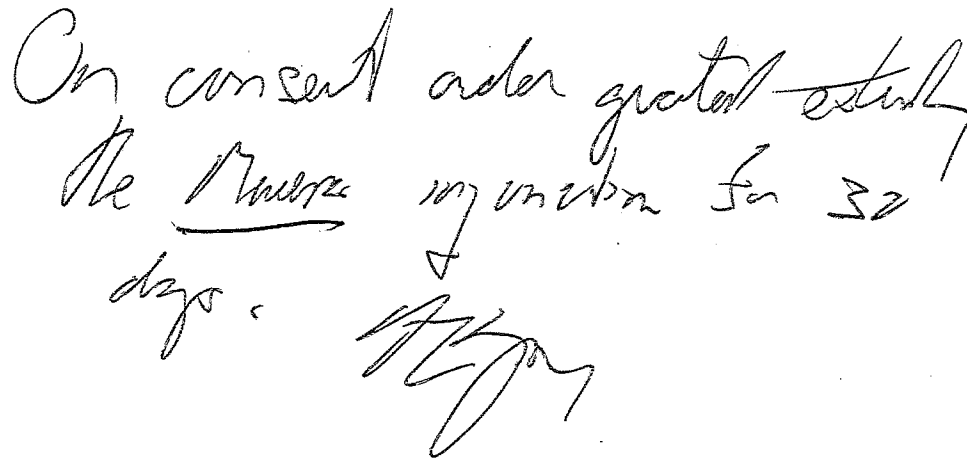 On consent order granted extending
the Mareva injunction for 30
days.